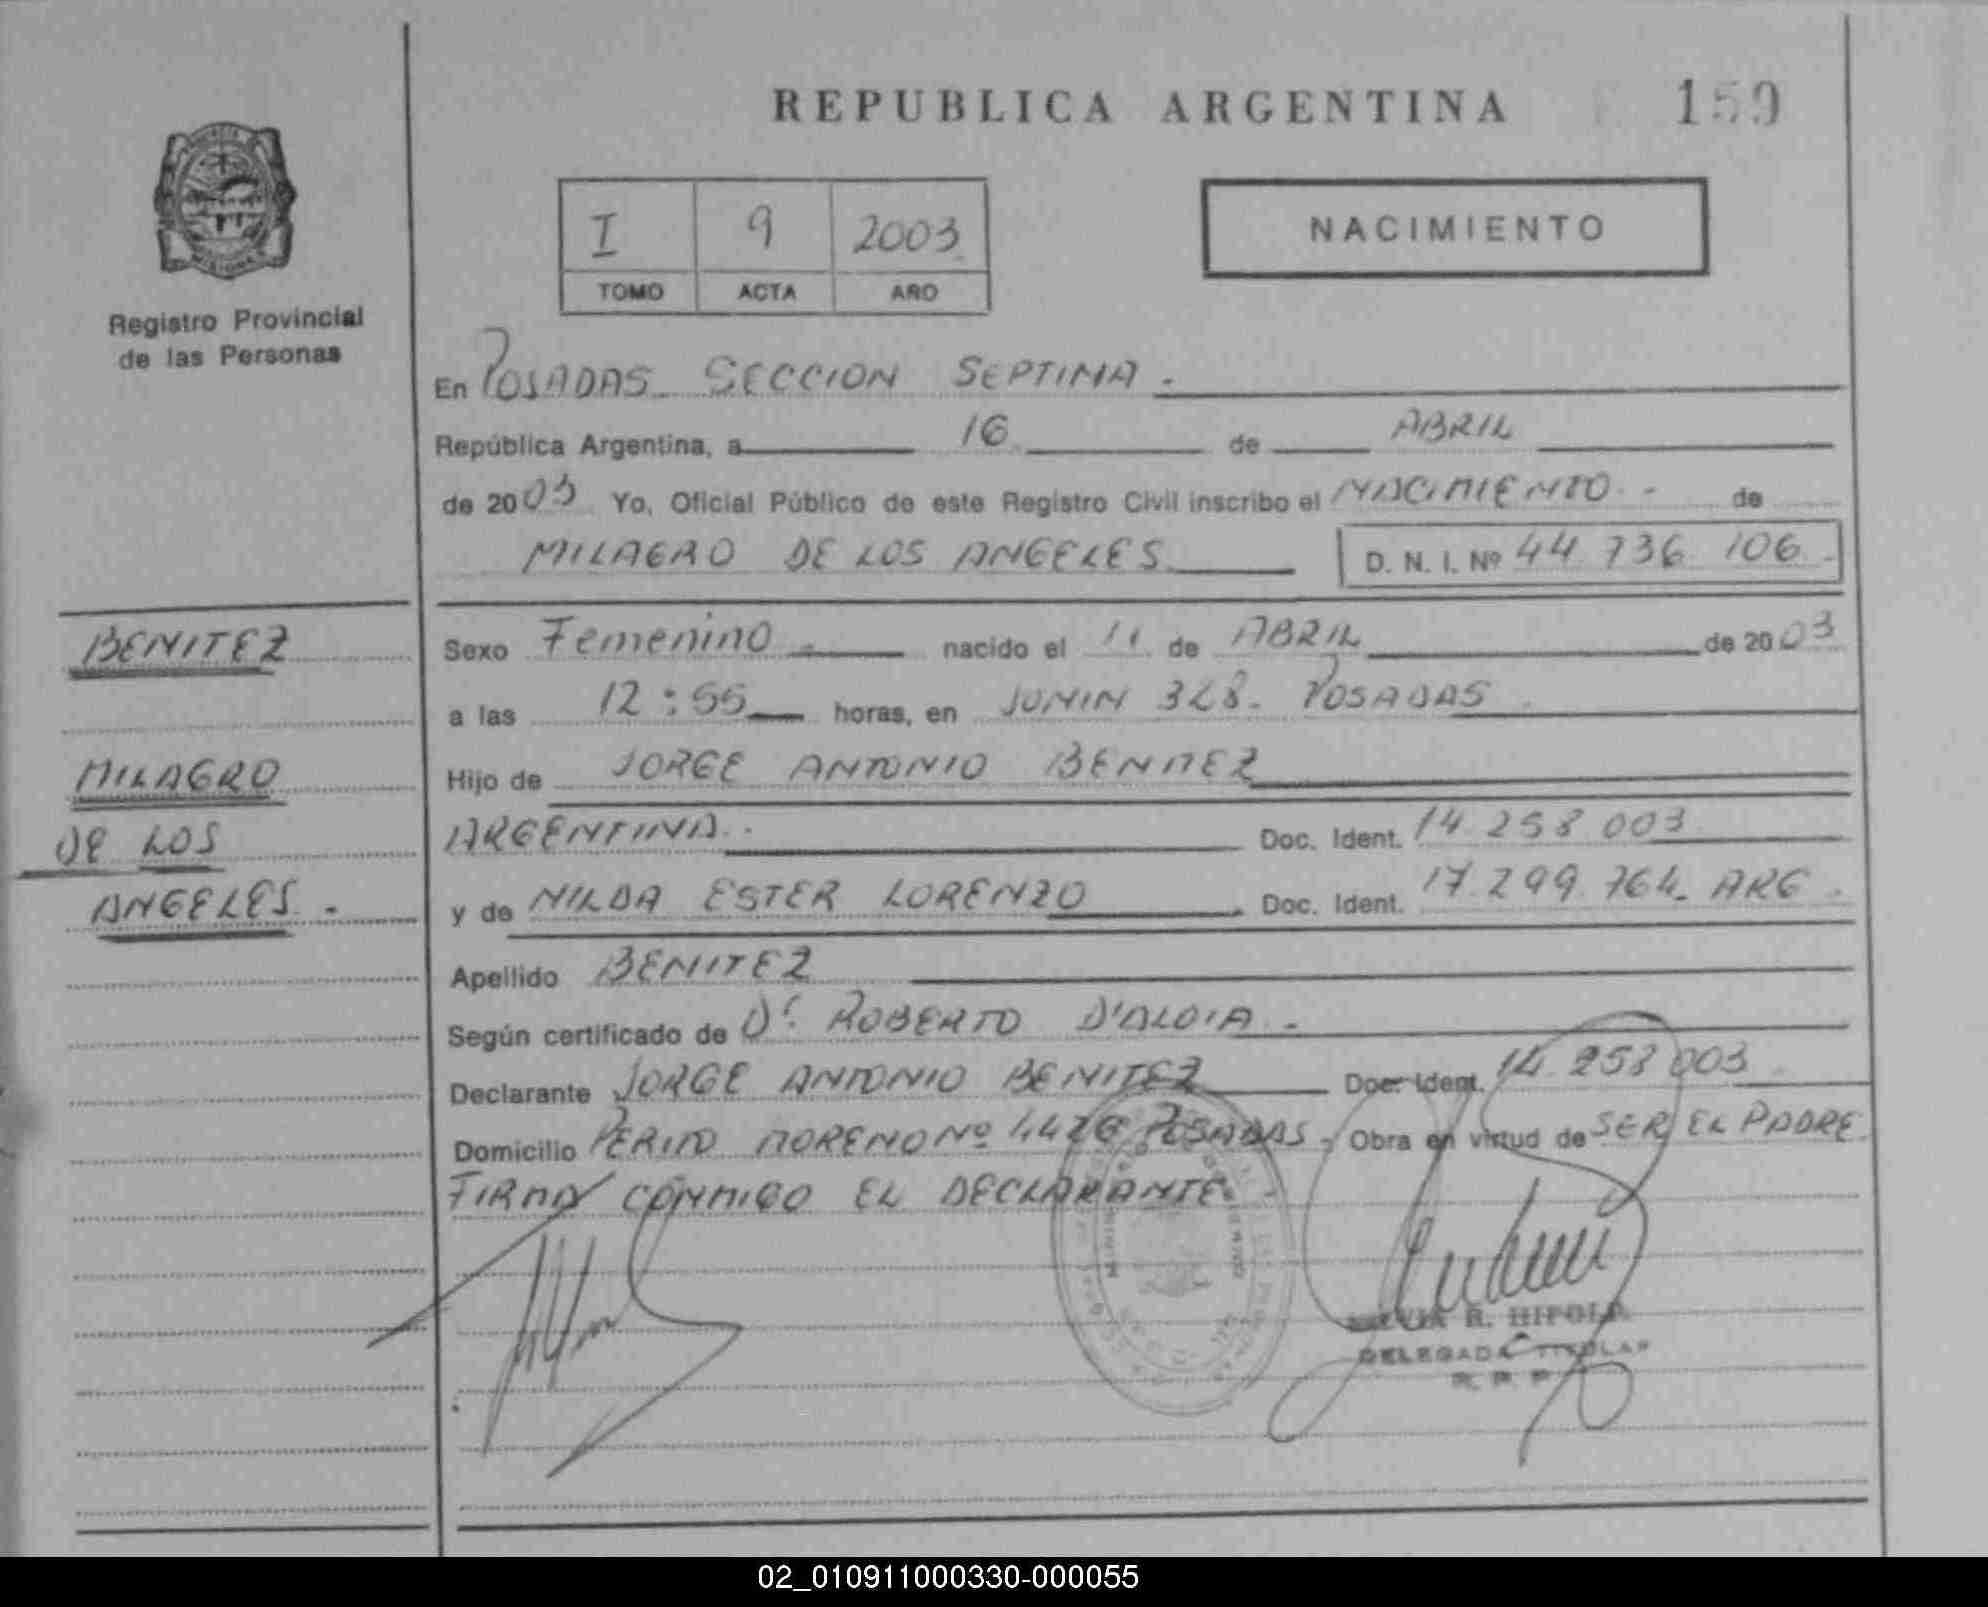 REPUBLICA ARGENTINA
159
I 9 2003
TOMO ACTA AÑO
NACIMIENTO
Registro Provincial
de las Personas
En POSADAS SECCION SEPTIMA.
República Argentina, a 16 de ABRIL
de 2003 Yo, Oficial Público de este Registro Civil inscribo el NACIMIENTO - de
MILAGRO DE LOS ANGELES D. N. I. Nº 44 736 106
BENITEZ
MILAGRO
DE LOS
ANGELES.-
Sexo Femenino nacido el 11 de ABRIL de 2003
a las 12:55 horas, en JUNIN 328. POSADAS
Hijo de JORGE ANTONIO BENITEZ
ARGENTINA. Doc. Ident. 14 258 003
y de NILDA ESTER LORENZO Doc. Ident. 17.299.764. ARG.
Apellido BENITEZ
Según certificado de Dr. ROBERTO D'ALOIA.-
Declarante JORGE ANTONIO BENITEZ Doc. Ident. 14 258 003
Domicilio PERITO MORENO Nº POSADAS. Obra en virtud de SER EL PADRE
FIRMA CONMIGO EL DECLARANTE
R. HIPOLI
DELEGADA TITULAR
R. P. P.
02_010911000330-000055